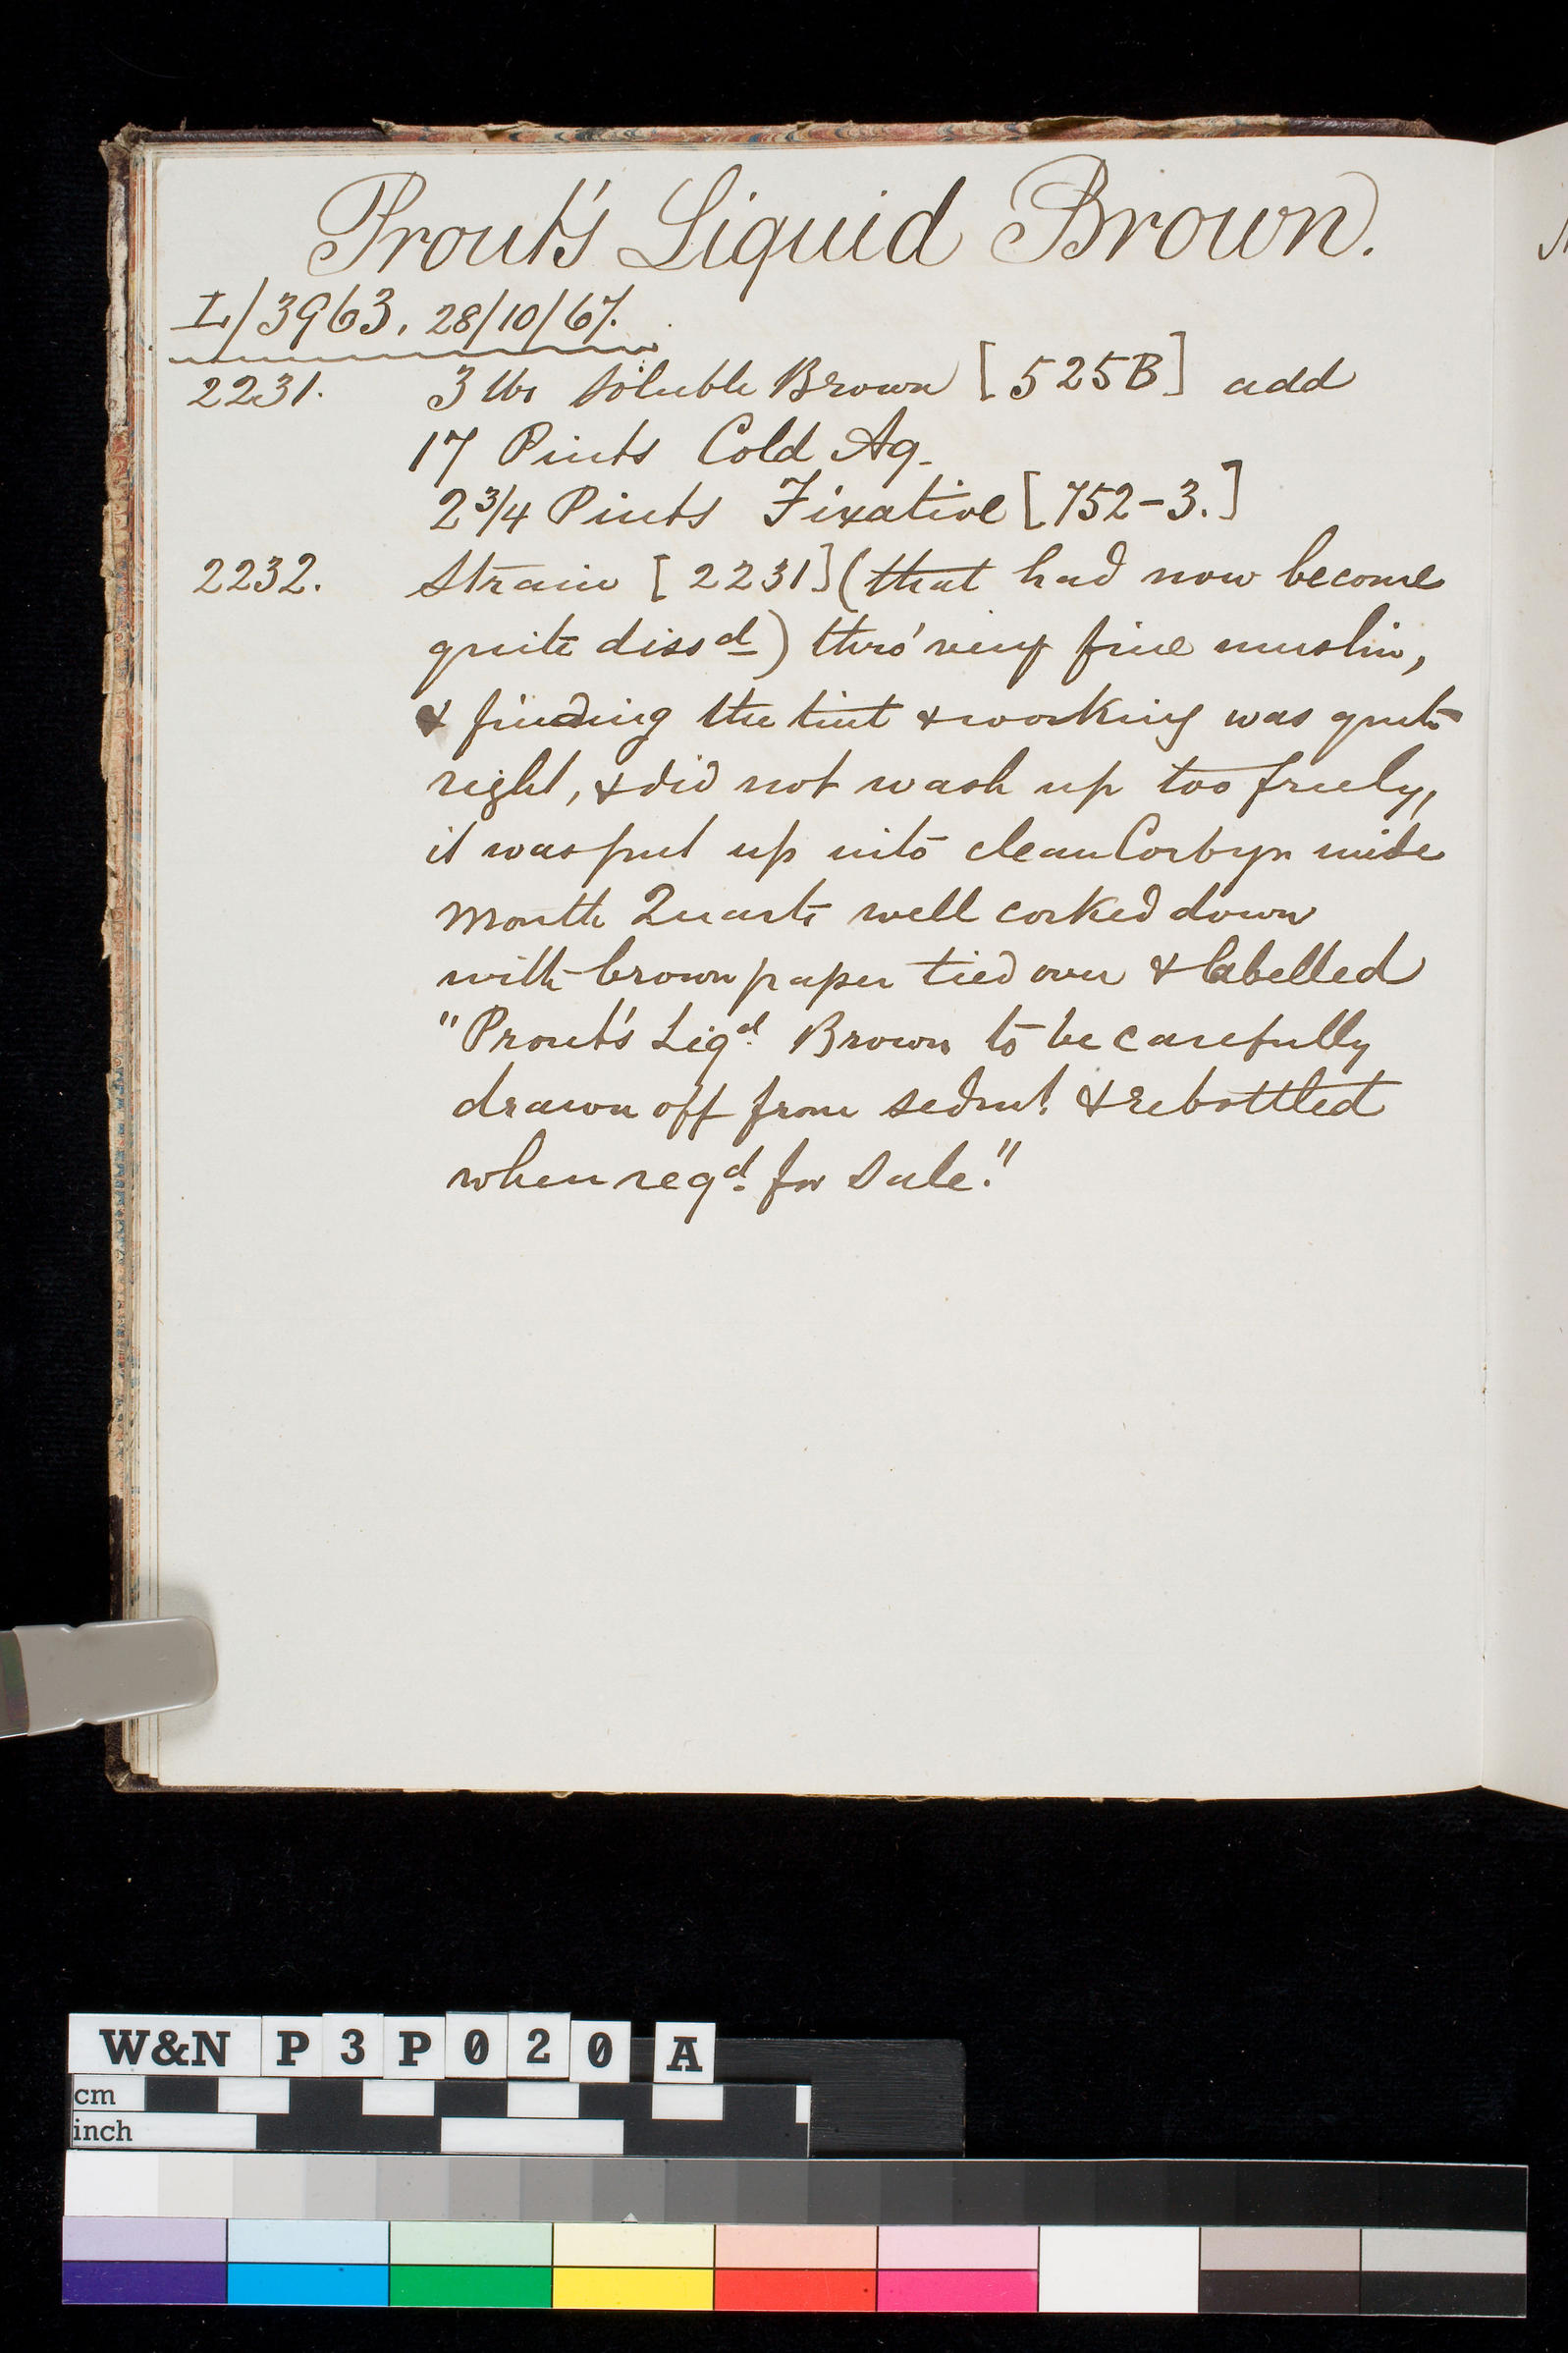 Prout's Liquid Brown.
L/3963. 28/10/67.
2231. 3 lbs Soluble Brown [525B] add
17 Pints Cold Aq.
2 3/4 Pints Fixative [752-3.]
2232. Strain [2231] (that had now become
quite dissd) thro' very fine muslin,
& finding the tint & working was quite
right, & did not wash up too freely,
it was put up into clean Corbyn wide
Mouth Quarts well corked down
with brown paper tied over & labelled
"Prout's Liqd. Brown to be carefully
drawn off from sedmt. & rebottled
when reqd. for Sale."
W&N P3P020 A
cm
inch